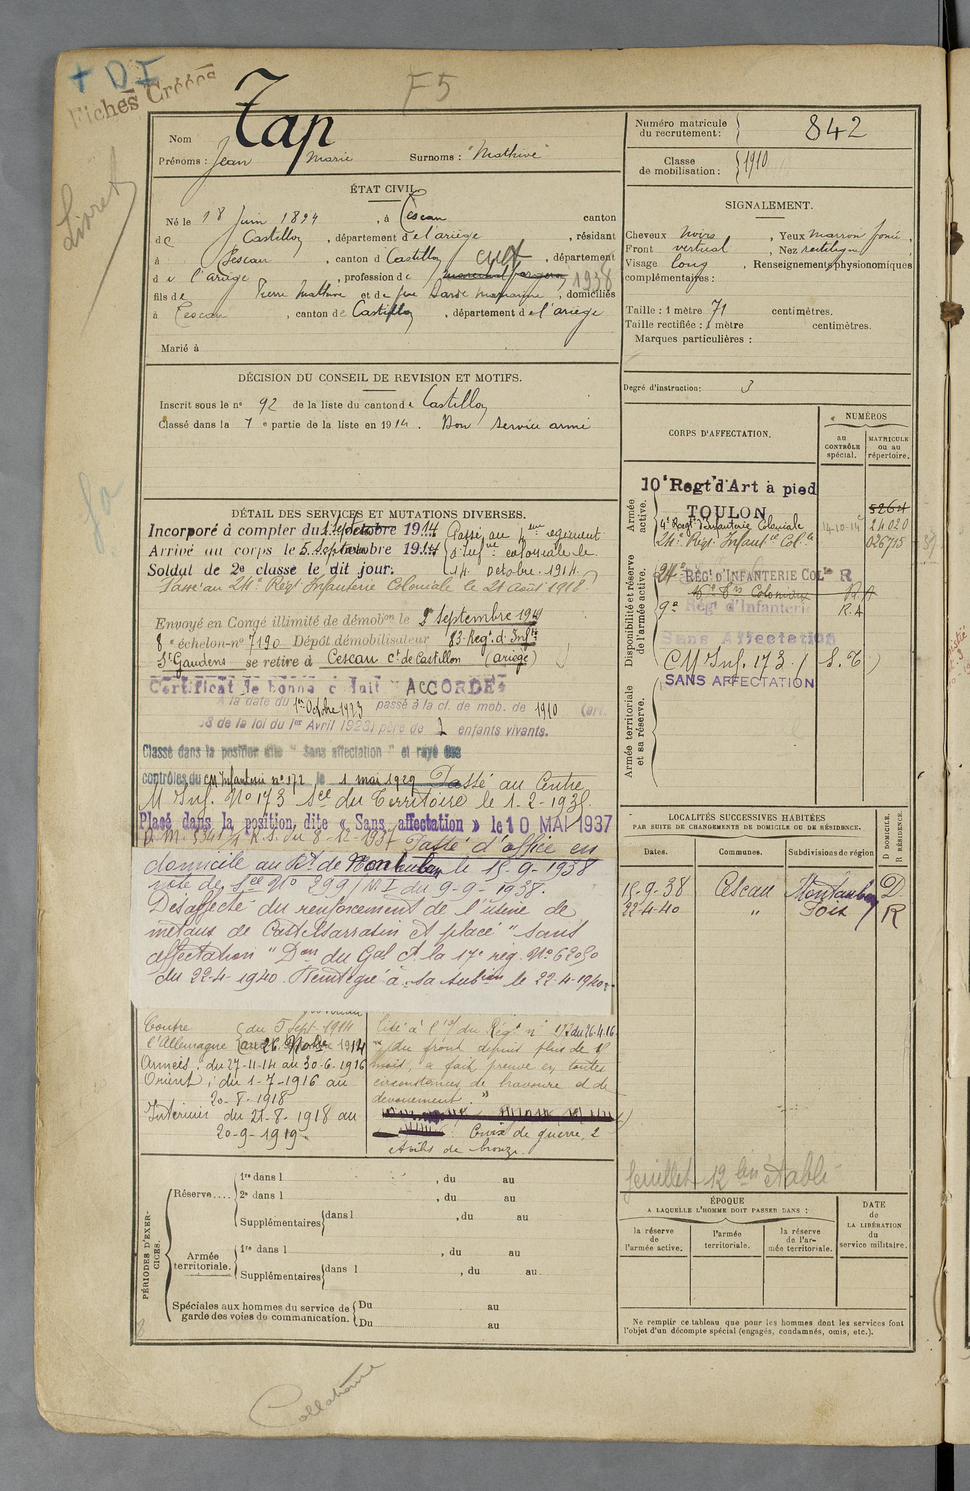 + D I
Fiches Créées
F5
Livret
Nom Tap
Prénoms : Jean Marie Surnoms : "Mathive"
Numéro matricule du recrutement : 842
Classe de mobilisation : 1910
ÉTAT CIVIL
Né le 18 Juin 1894, à Cescau canton
de Castillon, département de l'ariège, résidant
à Cescau, canton de Castillon, département
de l'ariège, profession de cult 1938
fils de Pierre Mathive et de feue, domiciliés
à Cescau, canton de Castillon, département de l'ariège
Marié à
SIGNALEMENT.
Cheveux noirs, Yeux marron foncé,
Front vertical, Nez rectiligne
Visage long, Renseignements physionomiques
complémentaires :
Taille : 1 mètre 71 centimètres.
Taille rectifiée : 1 mètre centimètres.
Marques particulières :
Degré d'instruction : 3
DÉCISION DU CONSEIL DE REVISION ET MOTIFS.
Inscrit sous le no 92 de la liste du canton de Castillon
Classé dans la 7e partie de la liste en 1914. Bon service armé
DÉTAIL DES SERVICES ET MUTATIONS DIVERSES.
Incorporé à compter du 1 Septembre 1914
Arrivé au corps le 5 Septembre 1914
Soldat de 2e classe le dit jour.
Passé au 4ème régiment
d'Infrie coloniale le
14 octobre 1914.
Passé au 24e Régt Infanterie Coloniale le 21 août 1918
Envoyé en Congé illimité de démobon le 9 Septembre 1919
8e échelon - no 7190 Dépôt démobilisateur 83 Regt d'Infie
St Gaudens se retire à Cescau ct de Castillon (ariège)
Certificat de bonne conduite "ACCORDÉ"
A la date du 1er Octobre 1923 passé à la cl. de mob. de 1910 (art.
58 de la loi du 1er Avril 1923) père de 2 enfants vivants.
Classé dans la position dite "Sans affectation" et rayé des
contrôles du CM Infanterie no 172 le 1 mai 1929 Passé au Centre
M Inf. No 173 Sce du Territoire le 1-2-193
Placé dans la position, dite « Sans affectation » le 10 MAI 1937
D.M. 5341/1 R.S. du 8-12-1937 Passé d'office en
domicile au Rt de Montauban le 15-9-1938
note de Sce No 299/M I du 9-9-1938.
Desaffecté du renforcement de l'usine de
métaux de Castelsarrasin et placé "sans
affectation" Don du Gal Ct la 17e rég. No 62030
du 22-4-1940. Réintégré à sa subion le 22-4-1940.
Contre du 5 Sept. 1914
l'Allemagne au 26 1914
Armées : du 27-11-14 au 30-6-1916
Orient : du 1-7-1916 au
20-8-1918
Intérieur du 21-8-1918 au
20-9-1919
Cité à l'o/ du Régt no 172 du 26.4.16
"au front depuis plus de 18
mois, a fait preuve en toutes
circonstances de bravoure et de
dévouement."
Croix de guerre, 2
étoiles de bronze.
CORPS D'AFFECTATION.
NUMÉROS
au CONTRÔLE spécial.
MATRICULE ou au répertoire.
Armée active.
10e Regt d'Art à pied
TOULON
5264
4e Regt d'Infanterie Coloniale 14-10-14 24020
24e Régt Infantie Colle 026715
Disponibilité et réserve de l'armée active.
24e REGt D'INFANTERIE COLle R
9e Régt d'Infanterie R.A
Sans Affectation
CM Inf. 173 (S.T.)
SANS AFFECTATION
Armée territoriale et sa réserve.
LOCALITÉS SUCCESSIVES HABITÉES
PAR SUITE DE CHANGEMENTS DE DOMICILE OU DE RÉSIDENCE.
Dates. Communes. Subdivisions de région D DOMICILE. R RÉSIDENCE.
15-9-38 Cescau Montauban D
22-4-40 " Foix R
feuillet 12 bis établi
PÉRIODES D'EXERCICES.
Réserve....
1re dans l , du au
2e dans l , du au
Supplémentaires dans l , du au
Armée territoriale.
1re dans l , du au
Supplémentaires dans l , du au.
Spéciales aux hommes du service de garde des voies de communication.
Du au
Du au
ÉPOQUE
A LAQUELLE L'HOMME DOIT PASSER DANS :
la réserve de l'armée active.
l'armée territoriale.
la réserve de l'armée territoriale.
DATE de LA LIBÉRATION du service militaire.
Ne remplir ce tableau que pour les hommes dont les services font
l'objet d'un décompte spécial (engagés, condamnés, omis, etc.).
Collationné